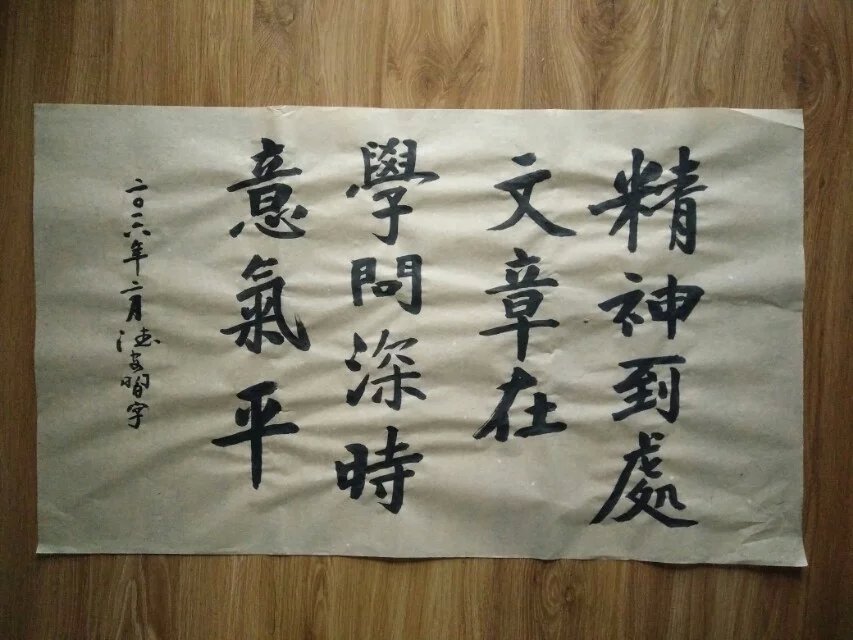 精神到處
文章在
學問深時
意氣平
二〇一六年二月